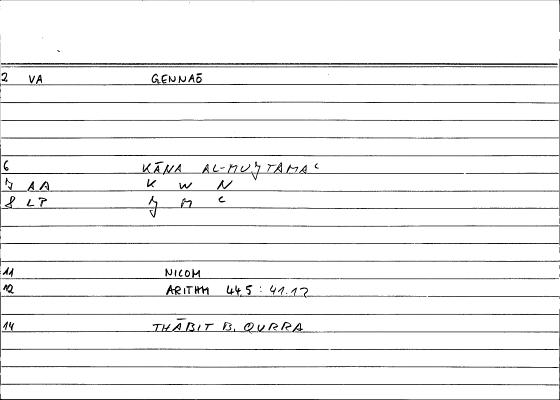 2 VA GENNAŌ
6 KĀNA AL-MUǦTAMAʿ
7 AA K W N
8 LP Ǧ M ʿ
11 NICOM
12 ARITHM 44,5 : 41.12
14 THĀBIT B. QURRA